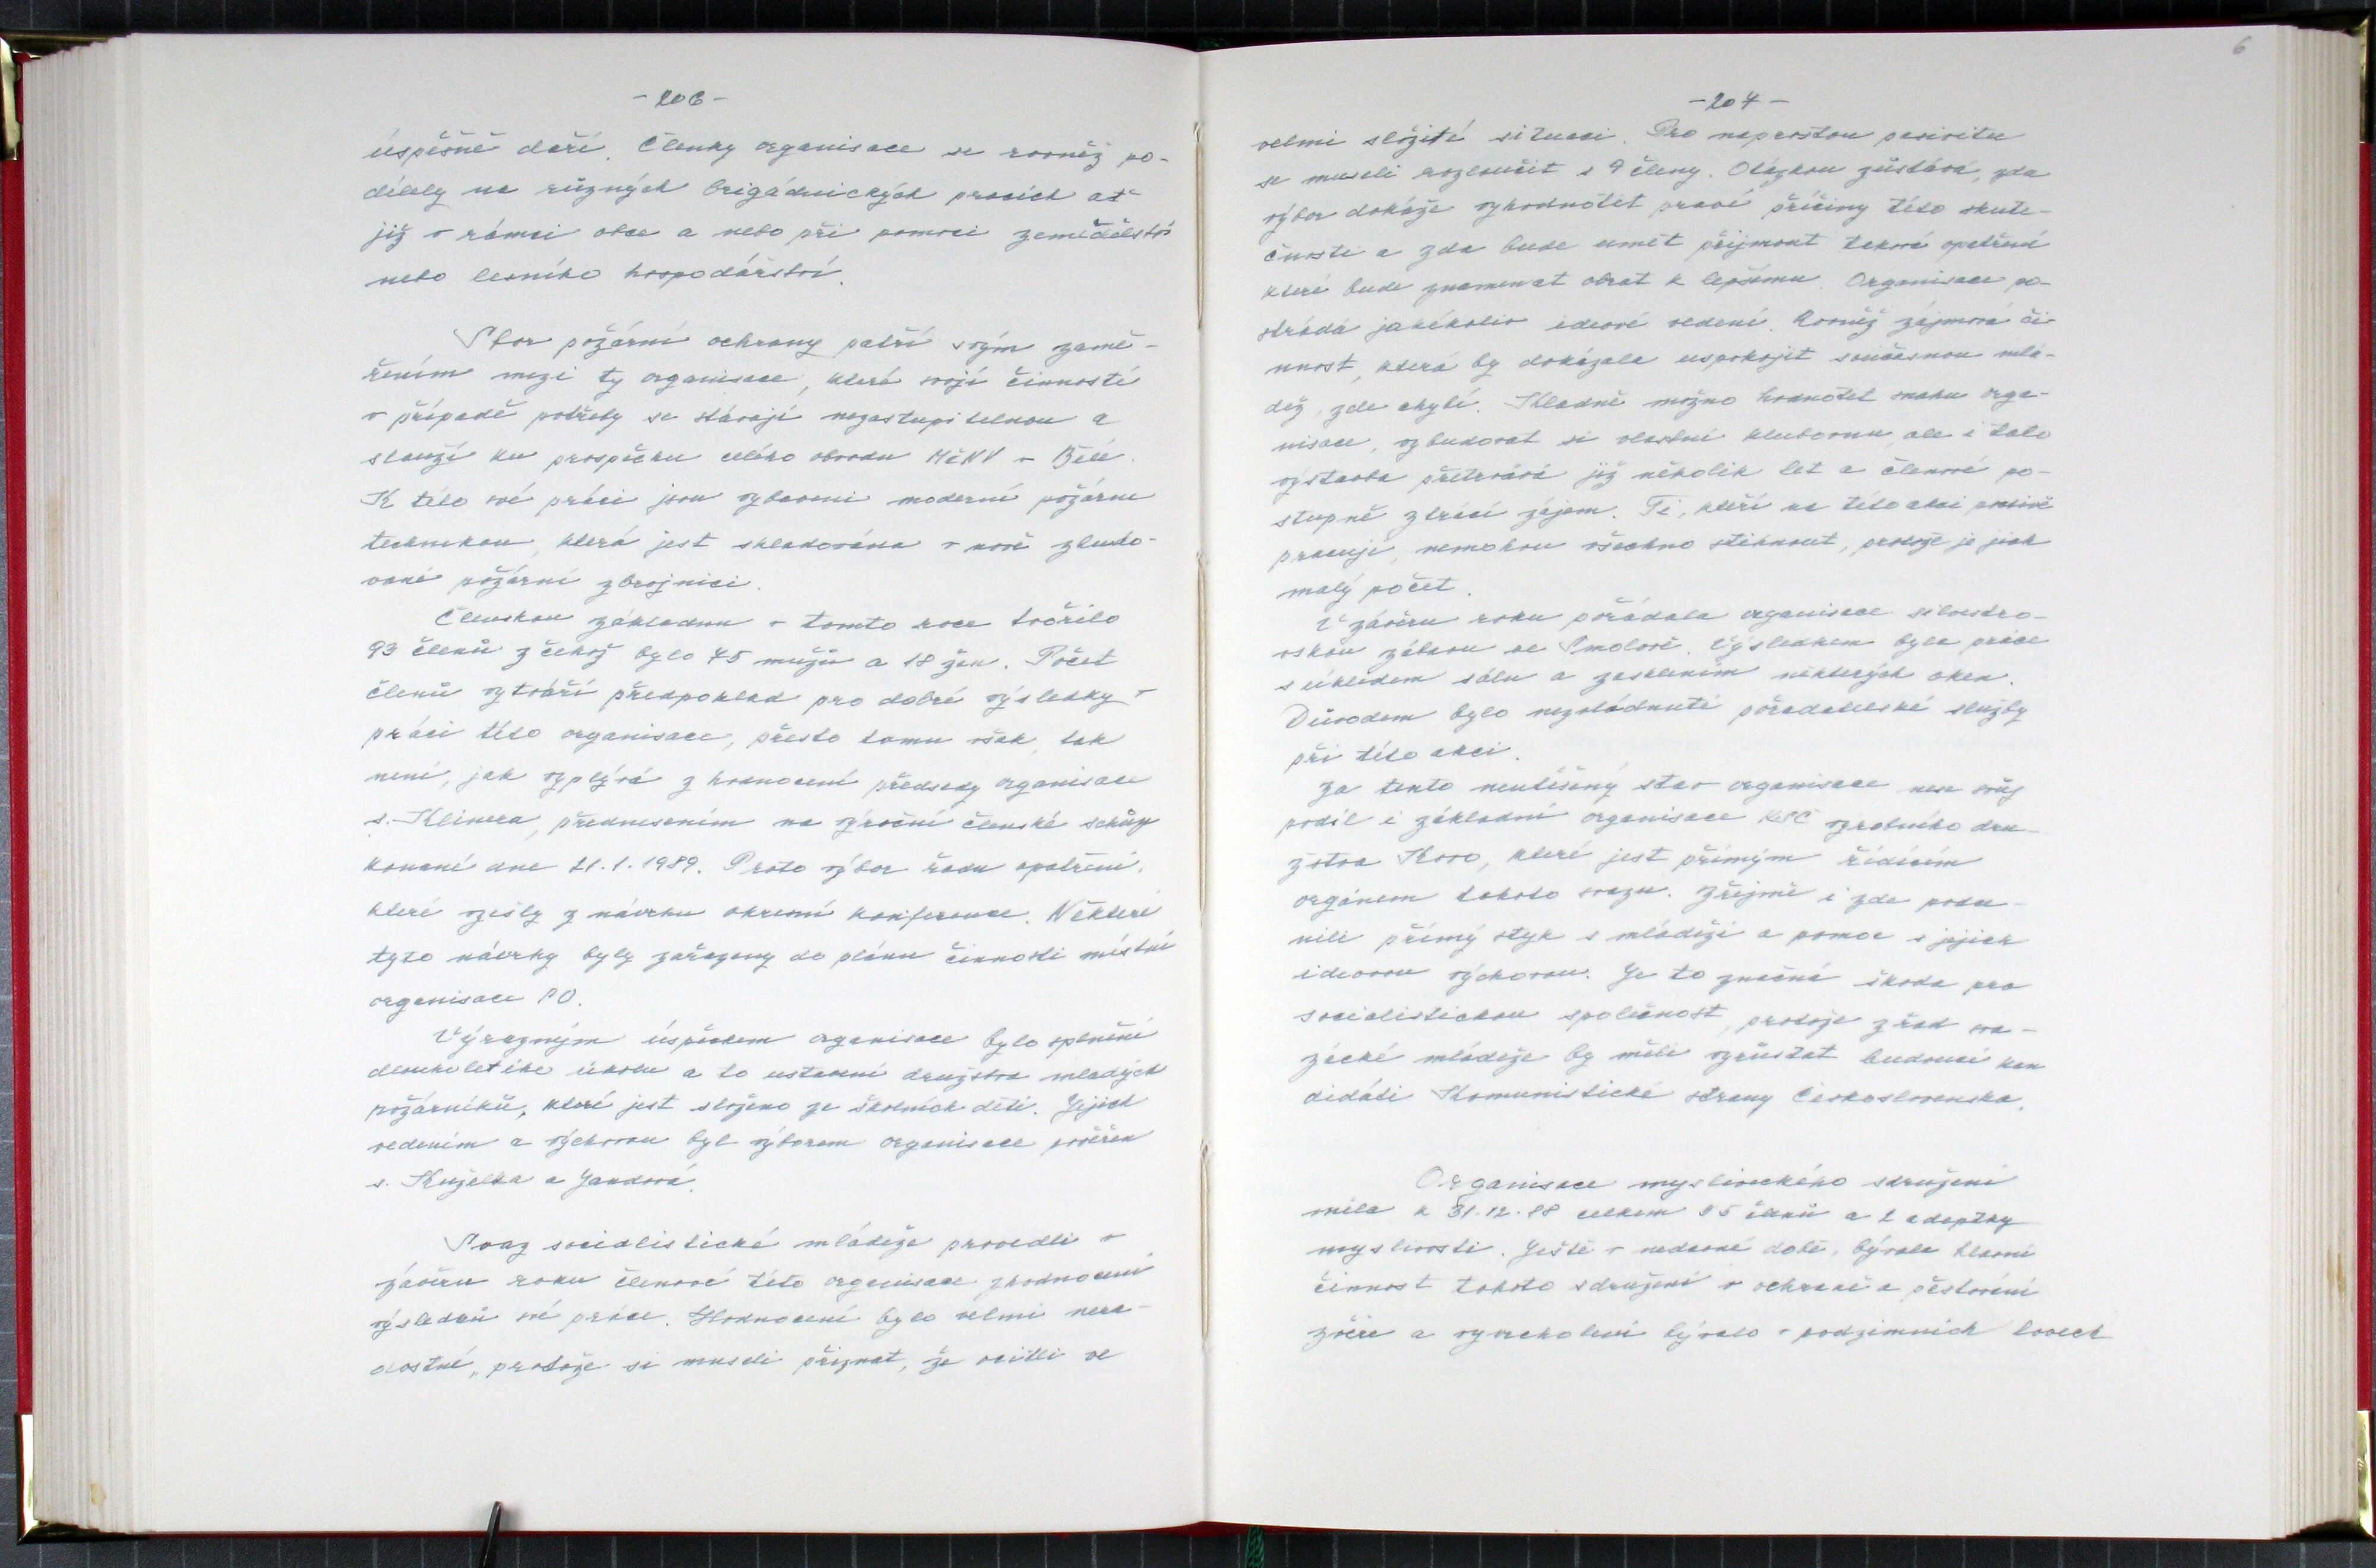 - 206 -
úspěšně daří. Členky organisace se rovněž po-
dílely na různých brigádnických pracích ať
již v rámci obce a nebo při pomoci zemědělství
nebo lesního hospodářství.
Sbor požární ochrany patří svým zamě-
řením mezi ty organisace, které svojí činností
v případě potřeby se stávají nezastupitelnou a
slouží ku prospěchu celého obvodu MěNV v Bělé.
K této své práci jsou vybaveni moderní požární
technikou, která jest skladována v nově zbudo-
vané požární zbrojnici.
Členskou základnu v tomto roce tvořilo
93 členů z čehož bylo 75 mužů a 18 žen. Počet
členů vytváří předpoklad pro dobré výsledky v
práci této organisace, přesto tomu však, tak
není, jak vyplývá z hodnocení předsedy organisace
s. Klinera, přednesením na výroční členské schůzi
konané dne 21.1.1989. Proto výbor řadu opatření,
které vzešly z návrhu okresní konference. Některé
tyto návrhy byly zařazeny do plánu činnosti místní
organisace PO.
Výrazným úspěchem organisace bylo splnění
dlouholetého úkolu a to ustavení družstva mladých
požárníků, které jest složeno ze školních dětí. Jejich
vedením a výchovou byl výborem organisace pověřen
s. Kuželka a Jandová.
Svaz socialistické mládeže provedli v
závěru roku členové této organisace zhodnocení
výsledků své práce. Hodnocení bylo velmi nera-
dostné, protože si museli přiznat, že ocitli ve
6
- 207 -
velmi složité situaci. Pro naprostou pasivitu
se museli rozloučit s 9 členy. Otázkou zůstává, zda
výbor dokáže vyhodnotit pravé příčiny této skute-
čnosti a zda bude umět přijmout taková opatření
které bude znamenat obrat k lepšímu. Organisace po-
strádá jakékoliv ideové vedení. Rovněž zájmová či-
nnost, která by dokázala uspokojit současnou mlá-
dež, zde chybí. Kladně možno hodnotit snahu orga-
nisace, vybudovat si vlastní klubovnu, ale i tato
výstavba přetrvává již několik let a členové po-
stupně ztrácí zájem. Ti, kteří na této akci poctivě
pracují, nemohou všechno stihnout, protože je jich
malý počet.
V závěru roku pořádala organisace silvestro-
vskou zábavu ve Smolově. Výsledkem byla práce
s úklidem sálu a zasklením některých oken.
Důvodem bylo nezvládnutí pořadatelské služby
při této akci.
Za tento neutěšený stav organisace nese svůj
podíl i základní organisace KSČ výrobního dru-
žstva Kovo, které jest přímým řídícím
orgánem tohoto svazu. Zřejmě i zde podce-
nili přímý styk s mládeží a pomoc s jejich
ideovou výchovou. Je to značná škoda pro
socialistickou společnost, protože z řad sva-
zácké mládeže by měli vyrůstat budoucí kan
didáti Komunistické strany Československa.
Organisace mysliveckého sdružení
měla k 31.12.88 celkem 35 členů a 2 adeptky
myslivosti. Ještě v nedavné době, bývala hlavní
činnost tohoto sdružení v ochraně a pěstování
zvěře a vyvrcholení bývalo v podzimních lovech